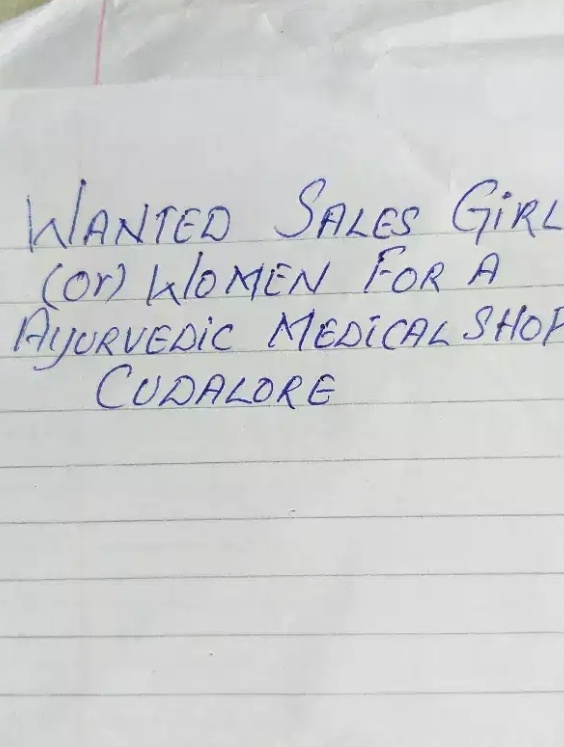 WANTED SALES GiRL
(Or) WOMEN FOR A
AyURVEDiC MEDiCAL SHOP
CUDALORE